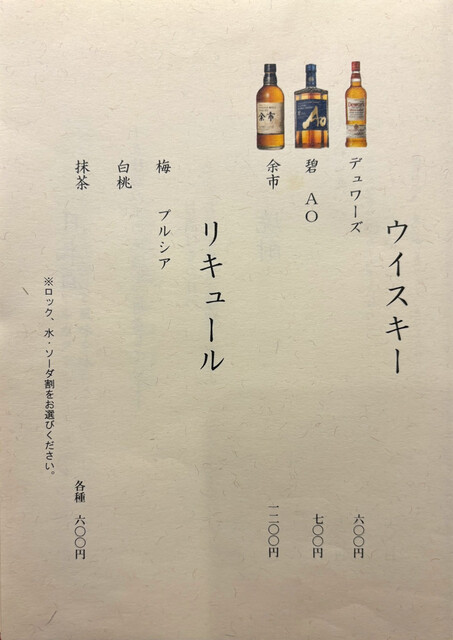 ウイスキー
デュワーズ 六〇〇円
碧 AO 七〇〇円
余市 一二〇〇円
リキュール
梅 プルシア
白桃
抹茶 各種 六〇〇円
※ロック、水・ソーダ割をお選びください。
余市
Ao